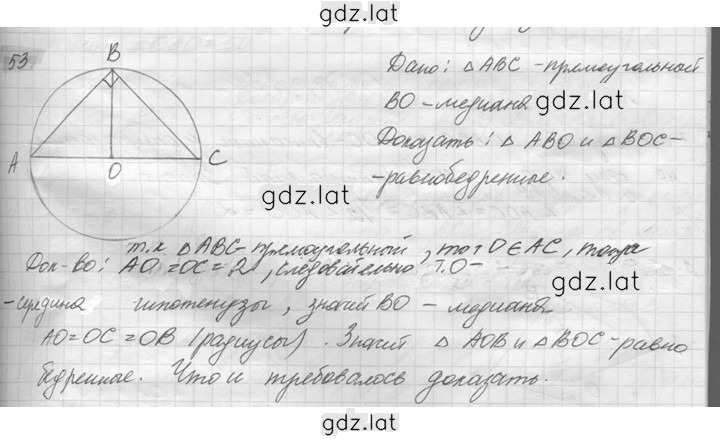 gdz.lat
53
B
A
O
C
Дано: △ABC - прямоугольный
BO - медиана
gdz.lat
Доказать: △ ABO и △BOC -
- равнобедренные.
gdz.lat
т.к △ABC - прямоугольный, то т O ∈ AC, тогда
Док-во: AO = OC = R, следовательно т.O -
- середина гипотенузы, значит BO - медиана
gdz.lat
AO = OC = OB (радиусы). Значит △ AOB и △BOC - равно
бедренные. Что и требовалось доказать.
gdz.lat